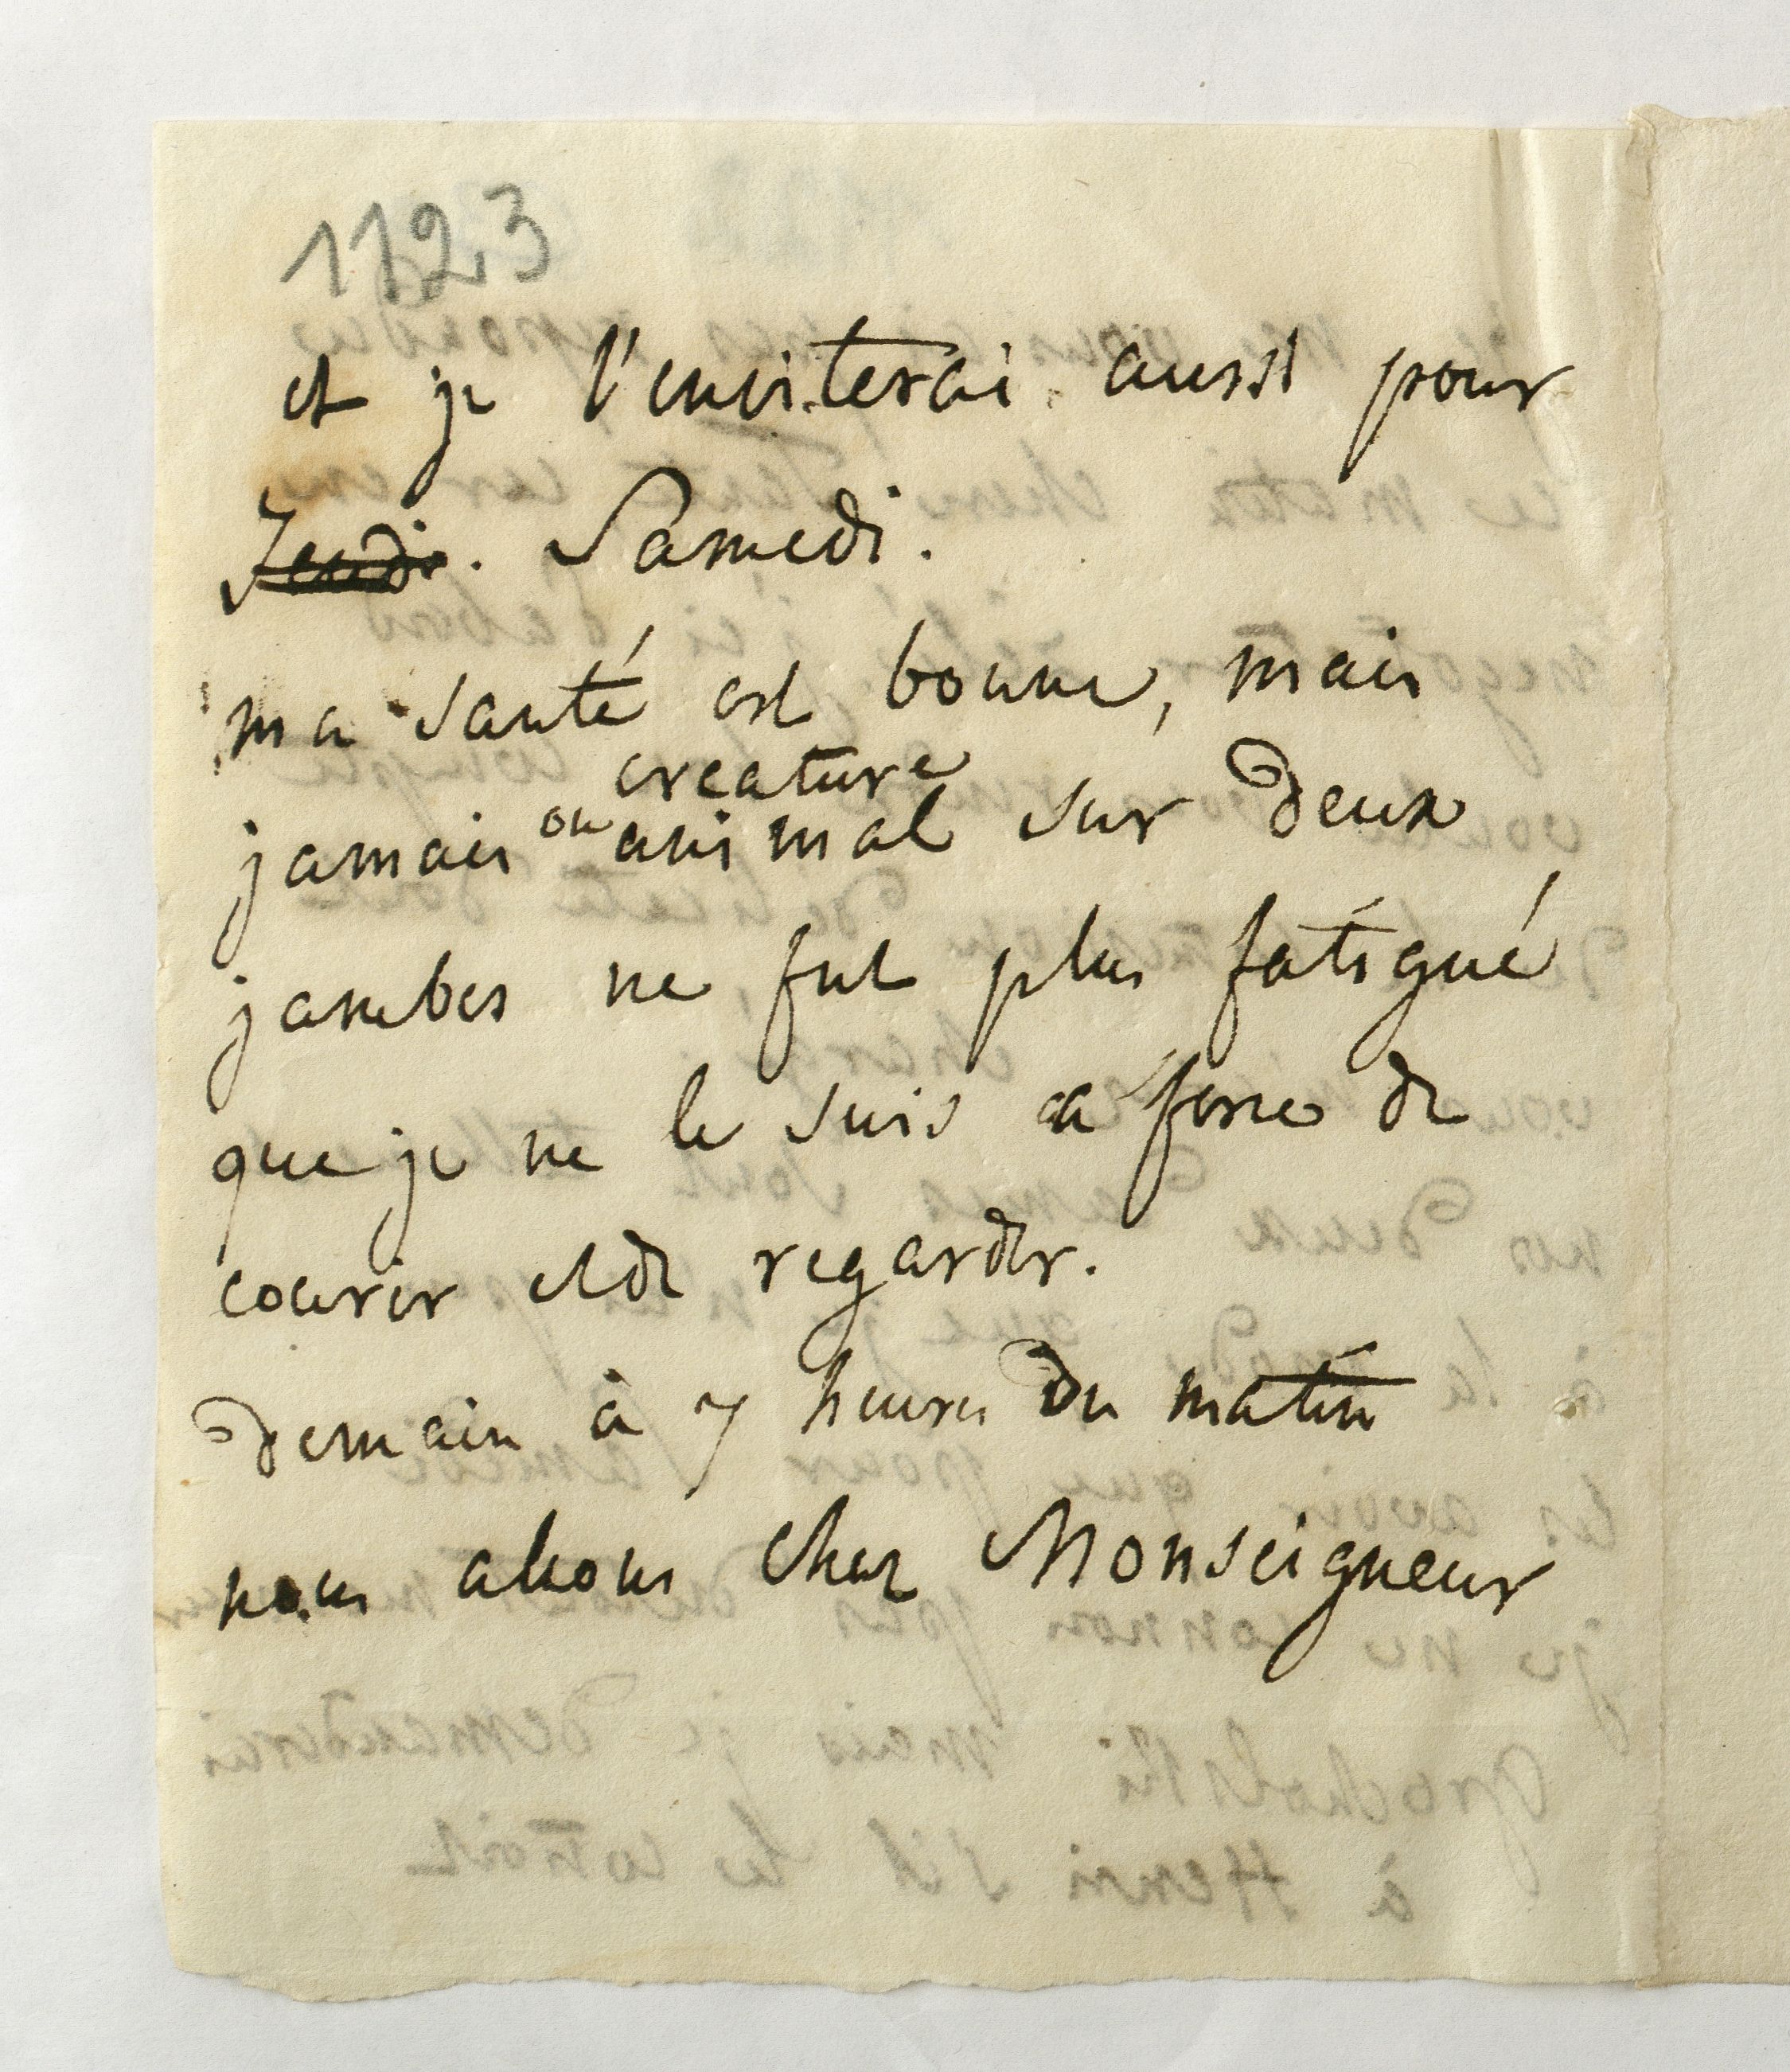 1123
et je l'enviterai aussi pour
Jeudi. Samedi.
ma santé est bonne, mais
creature
jamais ou animal sur deux
jambes ne fut plus fatigué
que je ne le suis a force de
courir et de regarder.
demain à 7 heures du matin
nous allons chez Monseigneur